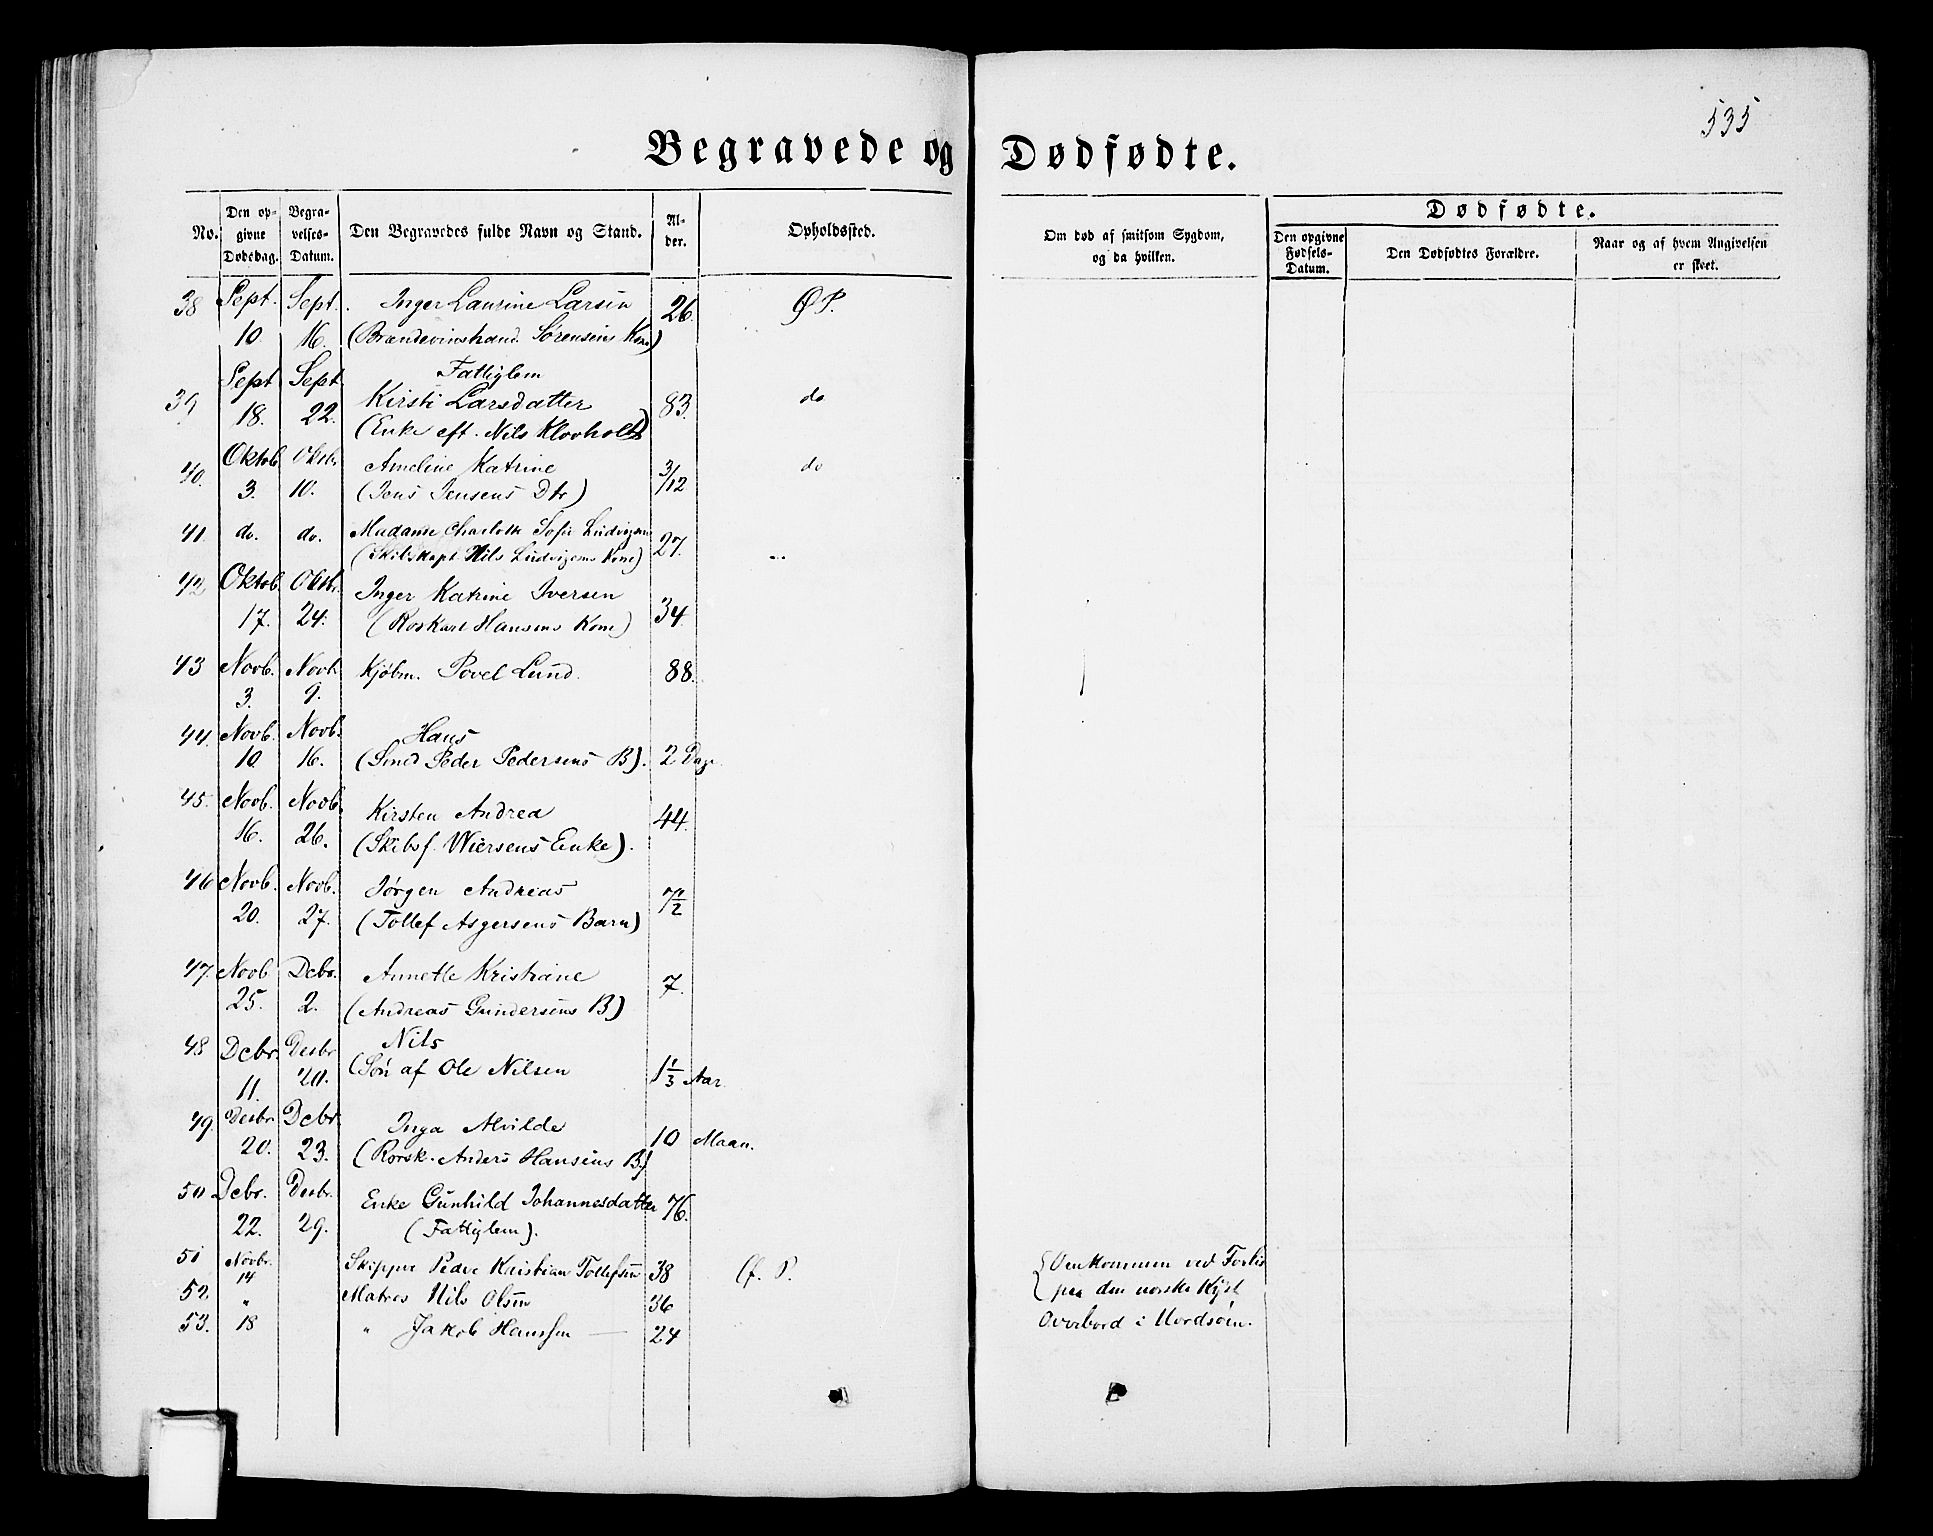 535
Begravede og Dødfødte.
No. Den opgivne Dødsdag. Begravelses-Datum. Den Begravedes fulde Navn og Stand. Alder. Opholdssted. Om død af smitsom Sygdom, og da hvilken. Dødfødte. Den opgivne Fødsels-Datum. Den Dødfødtes Forældre. Naar og af hvem Angivelsen er skeet.
38 Sept. Sept. Inger Laurine Larsen 26. Ø P.
10 16. (Brændevinshand. Sørensens Kone)
Sept Sept. Fattiglem
39 Kirsti Larsdatter 83. do
18. 22. (Enke eft. Nils Klovholt)
40. Oktob. Oktbr. Ameline Katrine 3/12 do
3. 10. (Jens Jensens Dtr)
41 do. do. Madame Charlotte Sofie Ludvigsen 27.
(Skibskapt. Nils Ludvigsens Kone)
42 Oktob. Oktbr. Inger Katrine Iversen 34
17. 24. (Roskarl Hansens Kone)
43 Novb. Novb. Kjøbm. Povel Lund. 88.
3. 9.
44. Novb. Novb. Hans
10 16. (Smed Peder Pedersens B). 2 Dage
45. Novb. Novb. Kirsten Andrea 44.
16. 26. (Skibsf. Wiersens Enke).
46 Novb. Novb. Jørgen Andreas 7½
20. 27. (Tollef Asgersens Barn)
47. Novb Debr. Annette Kristiane 7.
25. 2. (Andreas Gundersens B)
48 Debr. Desbr Nils
11. 20. (Søn af Ole Nilsen 1⅓ Aar
49. Desbr. Debr. Inga Alvilde 10 Maan.
20. 23. (Rorsk. Anders Hansens B.)
50 Debr. Desbr. Enke Gunhild Johannesdatter 76.
22. 29. (Fattiglem).
51 Novbr. 14 Skipper Peder Kristian Tollefsen 38 Ø. P. Omkommen ved Forlis
52. " Matros Nils Olsen 36 paa den norske Kyst
53. 18 " Jakob Hanssen 24 Overbord i Nordsøen.